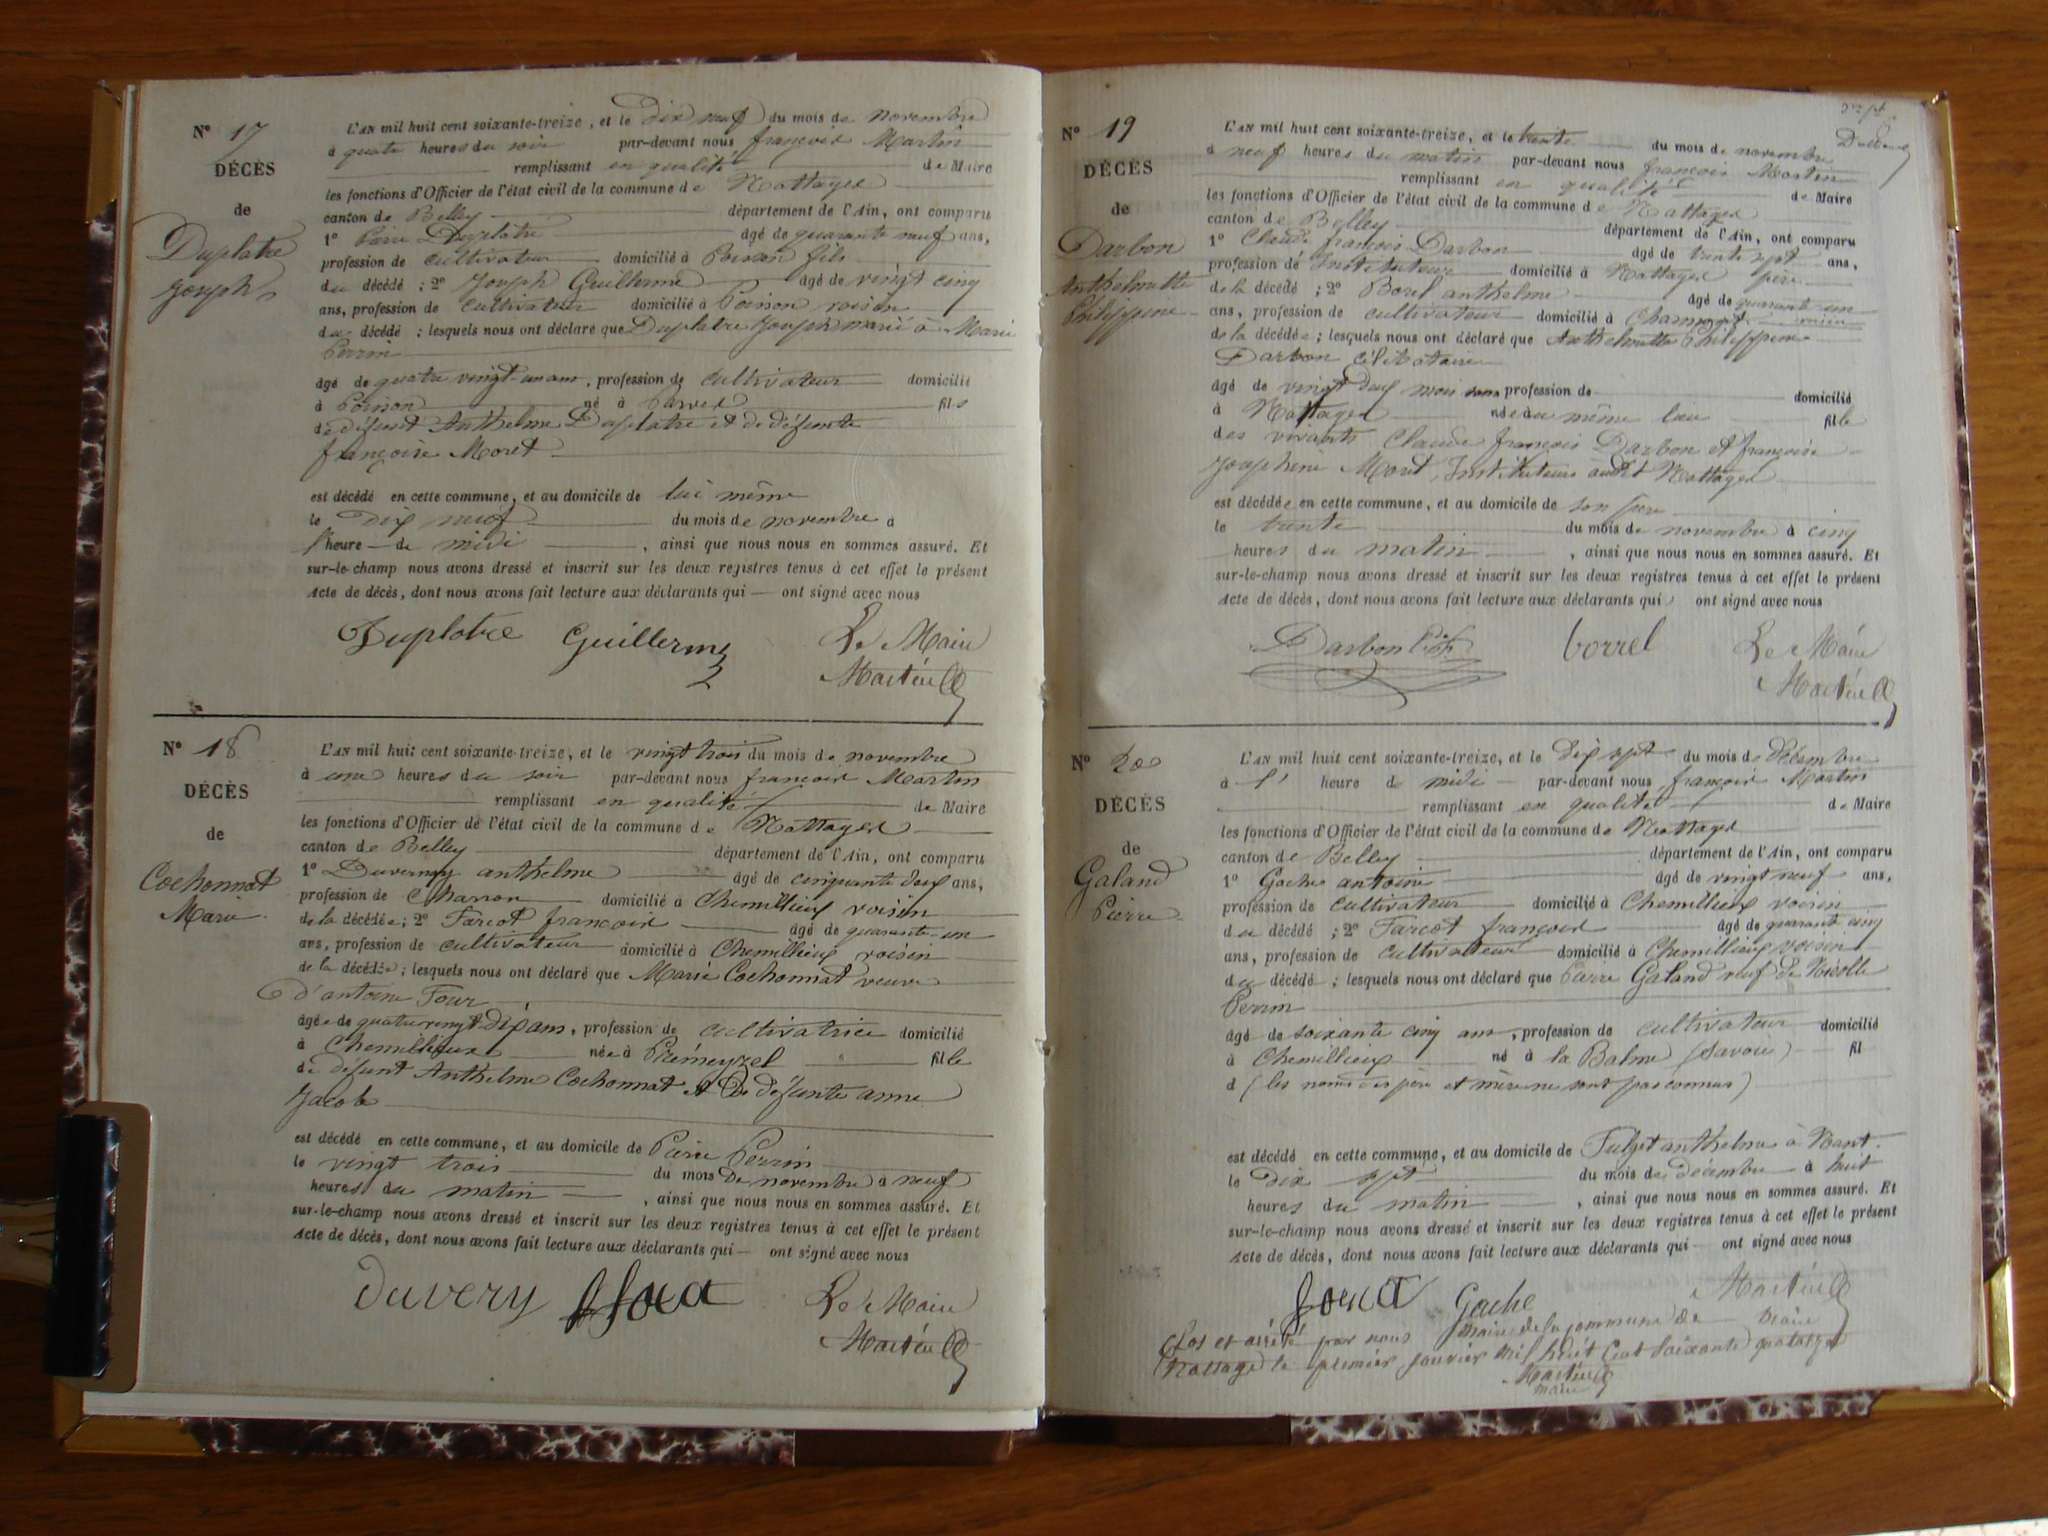 N° 17
DÉCÈS
de
Duplatre
Joseph
L'AN mil huit cent soixante-treize, et le Dix neuf du mois de novembre
à quatre heures du soir par-devant nous françois Martin
remplissant en qualité de Maire
les fonctions d'Officier de l'état civil de la commune de Nattages
canton de Belley département de l'Ain, ont comparu
1° Pierre Duplatre âgé de quarante neuf ans,
profession de cultivateur domicilié à Poirson fils
du décédé ; 2° Joseph Guillerme âgé de vingt cinq
ans, profession de cultivateur domicilié à Poirson voisin
du décédé ; lesquels nous ont déclaré que Duplatre Joseph marié à Marie
Perrin
âgé de quatre vingt-un ans, profession de cultivateur domicilié
à Poirson né à Parves fils
de défunt Anthelme Duplatre et de défunte
françoise Moret
est décédé en cette commune, et au domicile de lui même
le Dix neuf du mois de novembre à
l'heure de midi , ainsi que nous nous en sommes assuré. Et
sur-le-champ nous avons dressé et inscrit sur les deux registres tenus à cet effet le présent
Acte de décès, dont nous avons fait lecture aux déclarants qui — ont signé avec nous
Duplatre Guillerm Le Maire
Martin
N° 18
DÉCÈS
de
Cochonnat
Marie
L'AN mil huit cent soixante-treize, et le vingt trois du mois de novembre
à une heures du soir par-devant nous françois Martin
remplissant en qualité de Maire
les fonctions d'Officier de l'état civil de la commune de Nattages
canton de Belley département de l'Ain, ont comparu
1° Duvernay anthelme âgé de cinquante deux ans,
profession de Charron domicilié à Chemillieux voisin
de la décédée ; 2° Farcot françois âgé de quarante-un
ans, profession de cultivateur domicilié à Chemillieux voisin
de la décédée ; lesquels nous ont déclaré que Marie Cochonnat veuve
d'antoine Four
âgée de quatre vingt Dix ans, profession de cultivatrice domicilié
à Chemillieux née à Prémeyzel fille
de défunt Anthelme Cochonnat et De défunte anne
Jacob
est décédé en cette commune, et au domicile de Pierre Perrin
le vingt trois du mois De novembre à neuf
heures du matin , ainsi que nous nous en sommes assuré. Et
sur-le-champ nous avons dressé et inscrit sur les deux registres tenus à cet effet le présent
Acte de décès, dont nous avons fait lecture aux déclarants qui — ont signé avec nous
Duvery Le Maire
Martin
N° 19
DÉCÈS
de
Darbon
Anthelmette
Philippine
L'AN mil huit cent soixante-treize, et le trente du mois de novembre
à neuf heures du matin par-devant nous françois Martin
remplissant en qualité de Maire
les fonctions d'Officier de l'état civil de la commune de Nattages
canton de Belley département de l'Ain, ont comparu
1° Claude françois Darbon âgé de trente sept ans,
profession de Instituteur domicilié à Nattages père
de la décédé ; 2° Borel anthelme âgé de quarante un
ans, profession de cultivateur domicilié à
de la décédée ; lesquels nous ont déclaré que Anthelmette Philippine
Darbon célibataire
âgé de vingt deux mois profession de domicilié
à Nattages née au même lieu fille
des vivants Claude françois Darbon et françoise
Josephine Moret, Instituteurs audit Nattages
est décédée en cette commune, et au domicile de son père
le trente du mois de novembre à cinq
heures du matin , ainsi que nous nous en sommes assuré. Et
sur-le-champ nous avons dressé et inscrit sur les deux registres tenus à cet effet le présent
Acte de décès, dont nous avons fait lecture aux déclarants qui ont signé avec nous
Darbon borrel Le Maire
Martin
N° 20
DÉCÈS
de
Galand
Pierre
L'AN mil huit cent soixante-treize, et le Dix sept du mois de Décembre
à l' heure de midi par-devant nous françois Martin
remplissant en qualité de Maire
les fonctions d'Officier de l'état civil de la commune de Nattages
canton de Belley département de l'Ain, ont comparu
1° Gache antoine âgé de vingt neuf ans,
profession de cultivateur domicilié à Chemillieux voisin
du décédé ; 2° Farcot françois âgé de quarante cinq
ans, profession de cultivateur domicilié à Chemillieux voisin
du décédé ; lesquels nous ont déclaré que Pierre Galand veuf de Nicolle
Perrin
âgé de soixante cinq ans, profession de cultivateur domicilié
à Chemillieux né à la Balme (Savoie) fil
d (les noms des père et mère ne sont pas connus)
est décédé en cette commune, et au domicile de anthelme à Nant.
le Dix sept du mois de décembre à huit
heures du matin , ainsi que nous nous en sommes assuré. Et
sur-le-champ nous avons dressé et inscrit sur les deux registres tenus à cet effet le présent
Acte de décès, dont nous avons fait lecture aux déclarants qui — ont signé avec nous
Gache Martin
Clos et arrêté par nous Maire de la commune de Maire
Nattage le premier janvier mil huit cent soixante quatorze
Martin
maire